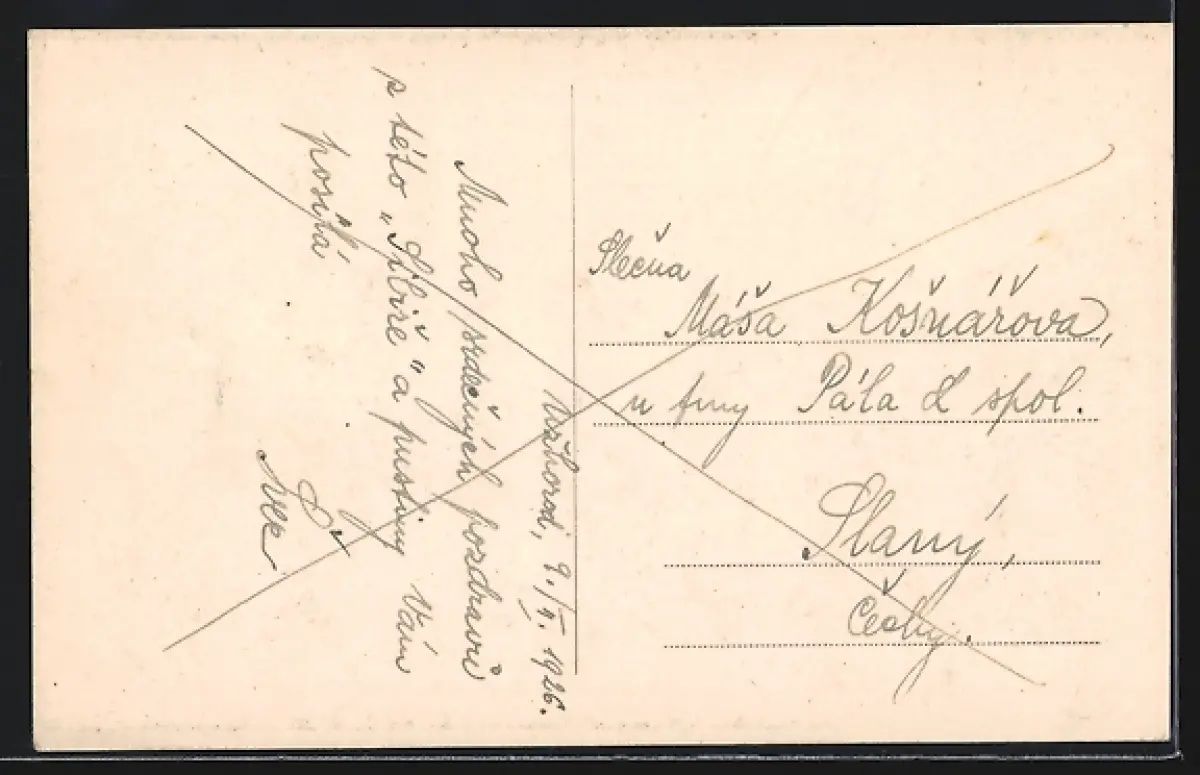 Užhorod, 9./V. 1926.
Mnoho srdečných pozdravů
s této „Sibiře" a pustiny Vám
posílá
Slečna
Máša Košnářova,
u fmy Pála & spol.
Slaný,
Čechy.